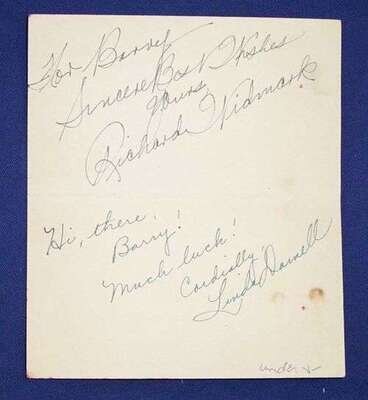 For Barry
Sincere Best Wishes
Yours
Richard Widmark
Hi, there,
Barry!
Much luck!
Cordially,
Linda Darnell